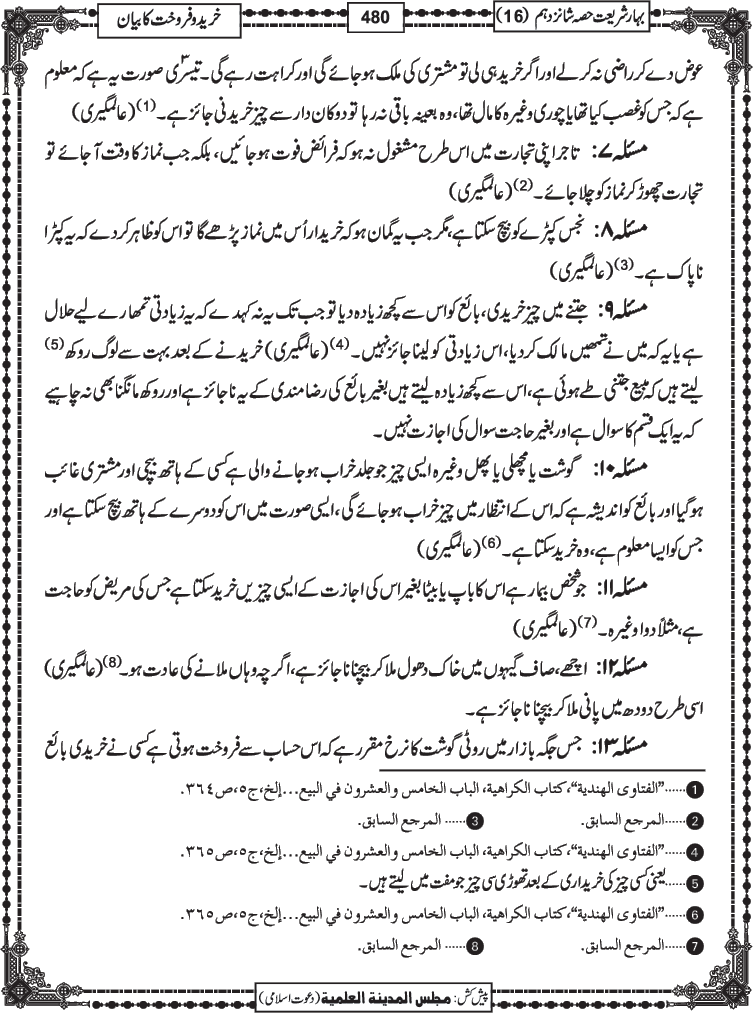 بہارِ شریعت حصہ شانزدہم (16)
480
خرید و فروخت کا بیان
عوض دے کر راضی نہ کرلے اور اگر خرید ہی لی تو مشتری کی ملک ہوجائے گی اور کراہت رہے گی۔ تیسری صورت یہ ہے کہ معلوم
ہے کہ جس کو غصب کیا تھا یا چوری وغیرہ کا مال تھا، وہ بعینہ باقی نہ رہا تو دوکان دار سے چیز خریدنی جائز ہے۔(1) (عالمگیری)
مسئلہ ۷: تاجر اپنی تجارت میں اس طرح مشغول نہ ہو کہ فرائض فوت ہوجائیں، بلکہ جب نماز کا وقت آجائے تو
تجارت چھوڑ کر نماز کو چلا جائے۔(2) (عالمگیری)
مسئلہ ۸: نجس کپڑے کو بیچ سکتا ہے، مگر جب یہ گمان ہو کہ خریدار اُس میں نماز پڑھے گا تو اس کو ظاہر کردے کہ یہ کپڑا
ناپاک ہے۔(3) (عالمگیری)
مسئلہ ۹: جتنے میں چیز خریدی، بائع کو اس سے کچھ زیادہ دیا تو جب تک یہ نہ کہدے کہ یہ زیادتی تمھارے لیے حلال
ہے یا یہ کہ میں نے تمھیں مالک کردیا، اس زیادتی کو لینا جائز نہیں۔(4) (عالمگیری) خریدنے کے بعد بہت سے لوگ روکھ(5)
لیتے ہیں کہ مبیع جتنی طے ہوئی ہے، اس سے کچھ زیادہ لیتے ہیں بغیر بائع کی رضامندی کے یہ ناجائز ہے اور روکھ مانگنا بھی نہ چاہیے
کہ یہ ایک قسم کا سوال ہے اور بغیر حاجت سوال کی اجازت نہیں۔
مسئلہ ۱۰: گوشت یا مچھلی یا پھل وغیرہ ایسی چیز جو جلد خراب ہوجانے والی ہے کسی کے ہاتھ بیچی اور مشتری غائب
ہوگیا اور بائع کو اندیشہ ہے کہ اس کے انتظار میں چیز خراب ہوجائے گی، ایسی صورت میں اس کو دوسرے کے ہاتھ بیچ سکتا ہے اور
جس کو ایسا معلوم ہے، وہ خرید سکتا ہے۔(6) (عالمگیری)
مسئلہ ۱۱: جو شخص بیمار ہے اس کا باپ یا بیٹا بغیر اس کی اجازت کے ایسی چیزیں خرید سکتا ہے جس کی مریض کو حاجت
ہے، مثلاً دوا وغیرہ۔(7) (عالمگیری)
مسئلہ ۱۲: اچھے، صاف گیہوں میں خاک دھول ملا کر بیچنا ناجائز ہے، اگرچہ وہاں ملانے کی عادت ہو۔(8) (عالمگیری)
اسی طرح دودھ میں پانی ملا کر بیچنا ناجائز ہے۔
مسئلہ ۱۳: جس جگہ بازار میں روٹی گوشت کا نرخ مقرر ہے کہ اس حساب سے فروخت ہوتی ہے کسی نے خریدی بائع
1......"الفتاوی الهندية"، كتاب الكراهية، الباب الخامس والعشرون في البيع...إلخ، ج٥، ص٣٦٤.
2......المرجع السابق. 3...... المرجع السابق.
4......"الفتاوی الهندية"، كتاب الكراهية، الباب الخامس والعشرون في البيع...إلخ، ج٥، ص٣٦٥.
5......یعنی کسی چیز کی خریداری کے بعد تھوڑی سی چیز جو مفت میں لیتے ہیں۔
6......"الفتاوی الهندية"، كتاب الكراهية، الباب الخامس والعشرون في البيع...إلخ، ج٥، ص٣٦٥.
7......المرجع السابق. 8...... المرجع السابق.
پیش کش: مجلس المدينة العلمية (دعوتِ اسلامی)